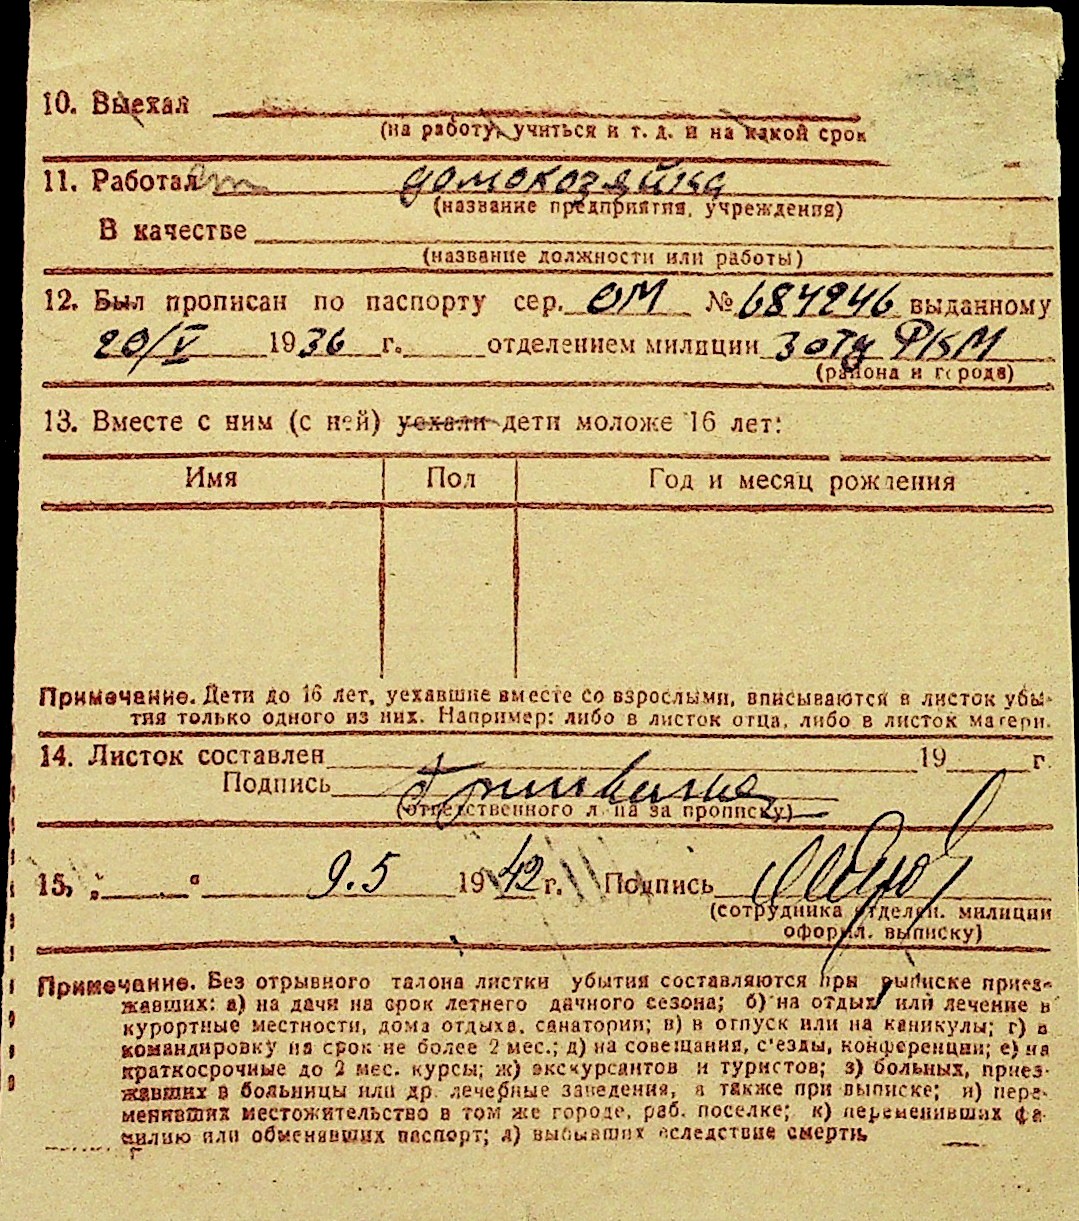 10. Выехал
(на работу, учиться и т. д. и на какой срок
11. Работал домохозяйка
(название предприятия, учреждения)
В качестве
(название должности или работы)
12. Был прописан по паспорту сер. ОМ № 684246 выданному
20/V 1936 г. отделением милиции 3 отд РКМ
(района и города)
13. Вместе с ним (с ней) уехали дети моложе 16 лет:
Имя Пол Год и месяц рождения
Примечание. Дети до 16 лет, уехавшие вместе со взрослыми, вписываются в листок убы-
тия только одного из них. Например: либо в листок отца, либо в листок матери.
14. Листок составлен 19 г.
Подпись
(ответственного лица за прописку)
15. „ “ 9.5 1942 г. Подпись
(сотрудника отделен. милиции
оформ. выписку)
Примечание. Без отрывного талона листки убытия составляются при выписке приез-
жавших: а) на дачи на срок летнего дачного сезона; б) на отдых или лечение в
курортные местности, дома отдыха, санатории; в) в отпуск или на каникулы; г) в
командировку на срок не более 2 мес.; д) на совещания, с'езды, конференции; е) на
краткосрочные до 2 мес. курсы; ж) экскурсантов и туристов; з) больных, приез-
жавших в больницы или др. лечебные заведения, а также при выписке; и) пере-
менивших местожительство в том же городе, раб. поселке; к) переменивших фа-
милию или обменявших паспорт; л) выбывших вследствие смерти.